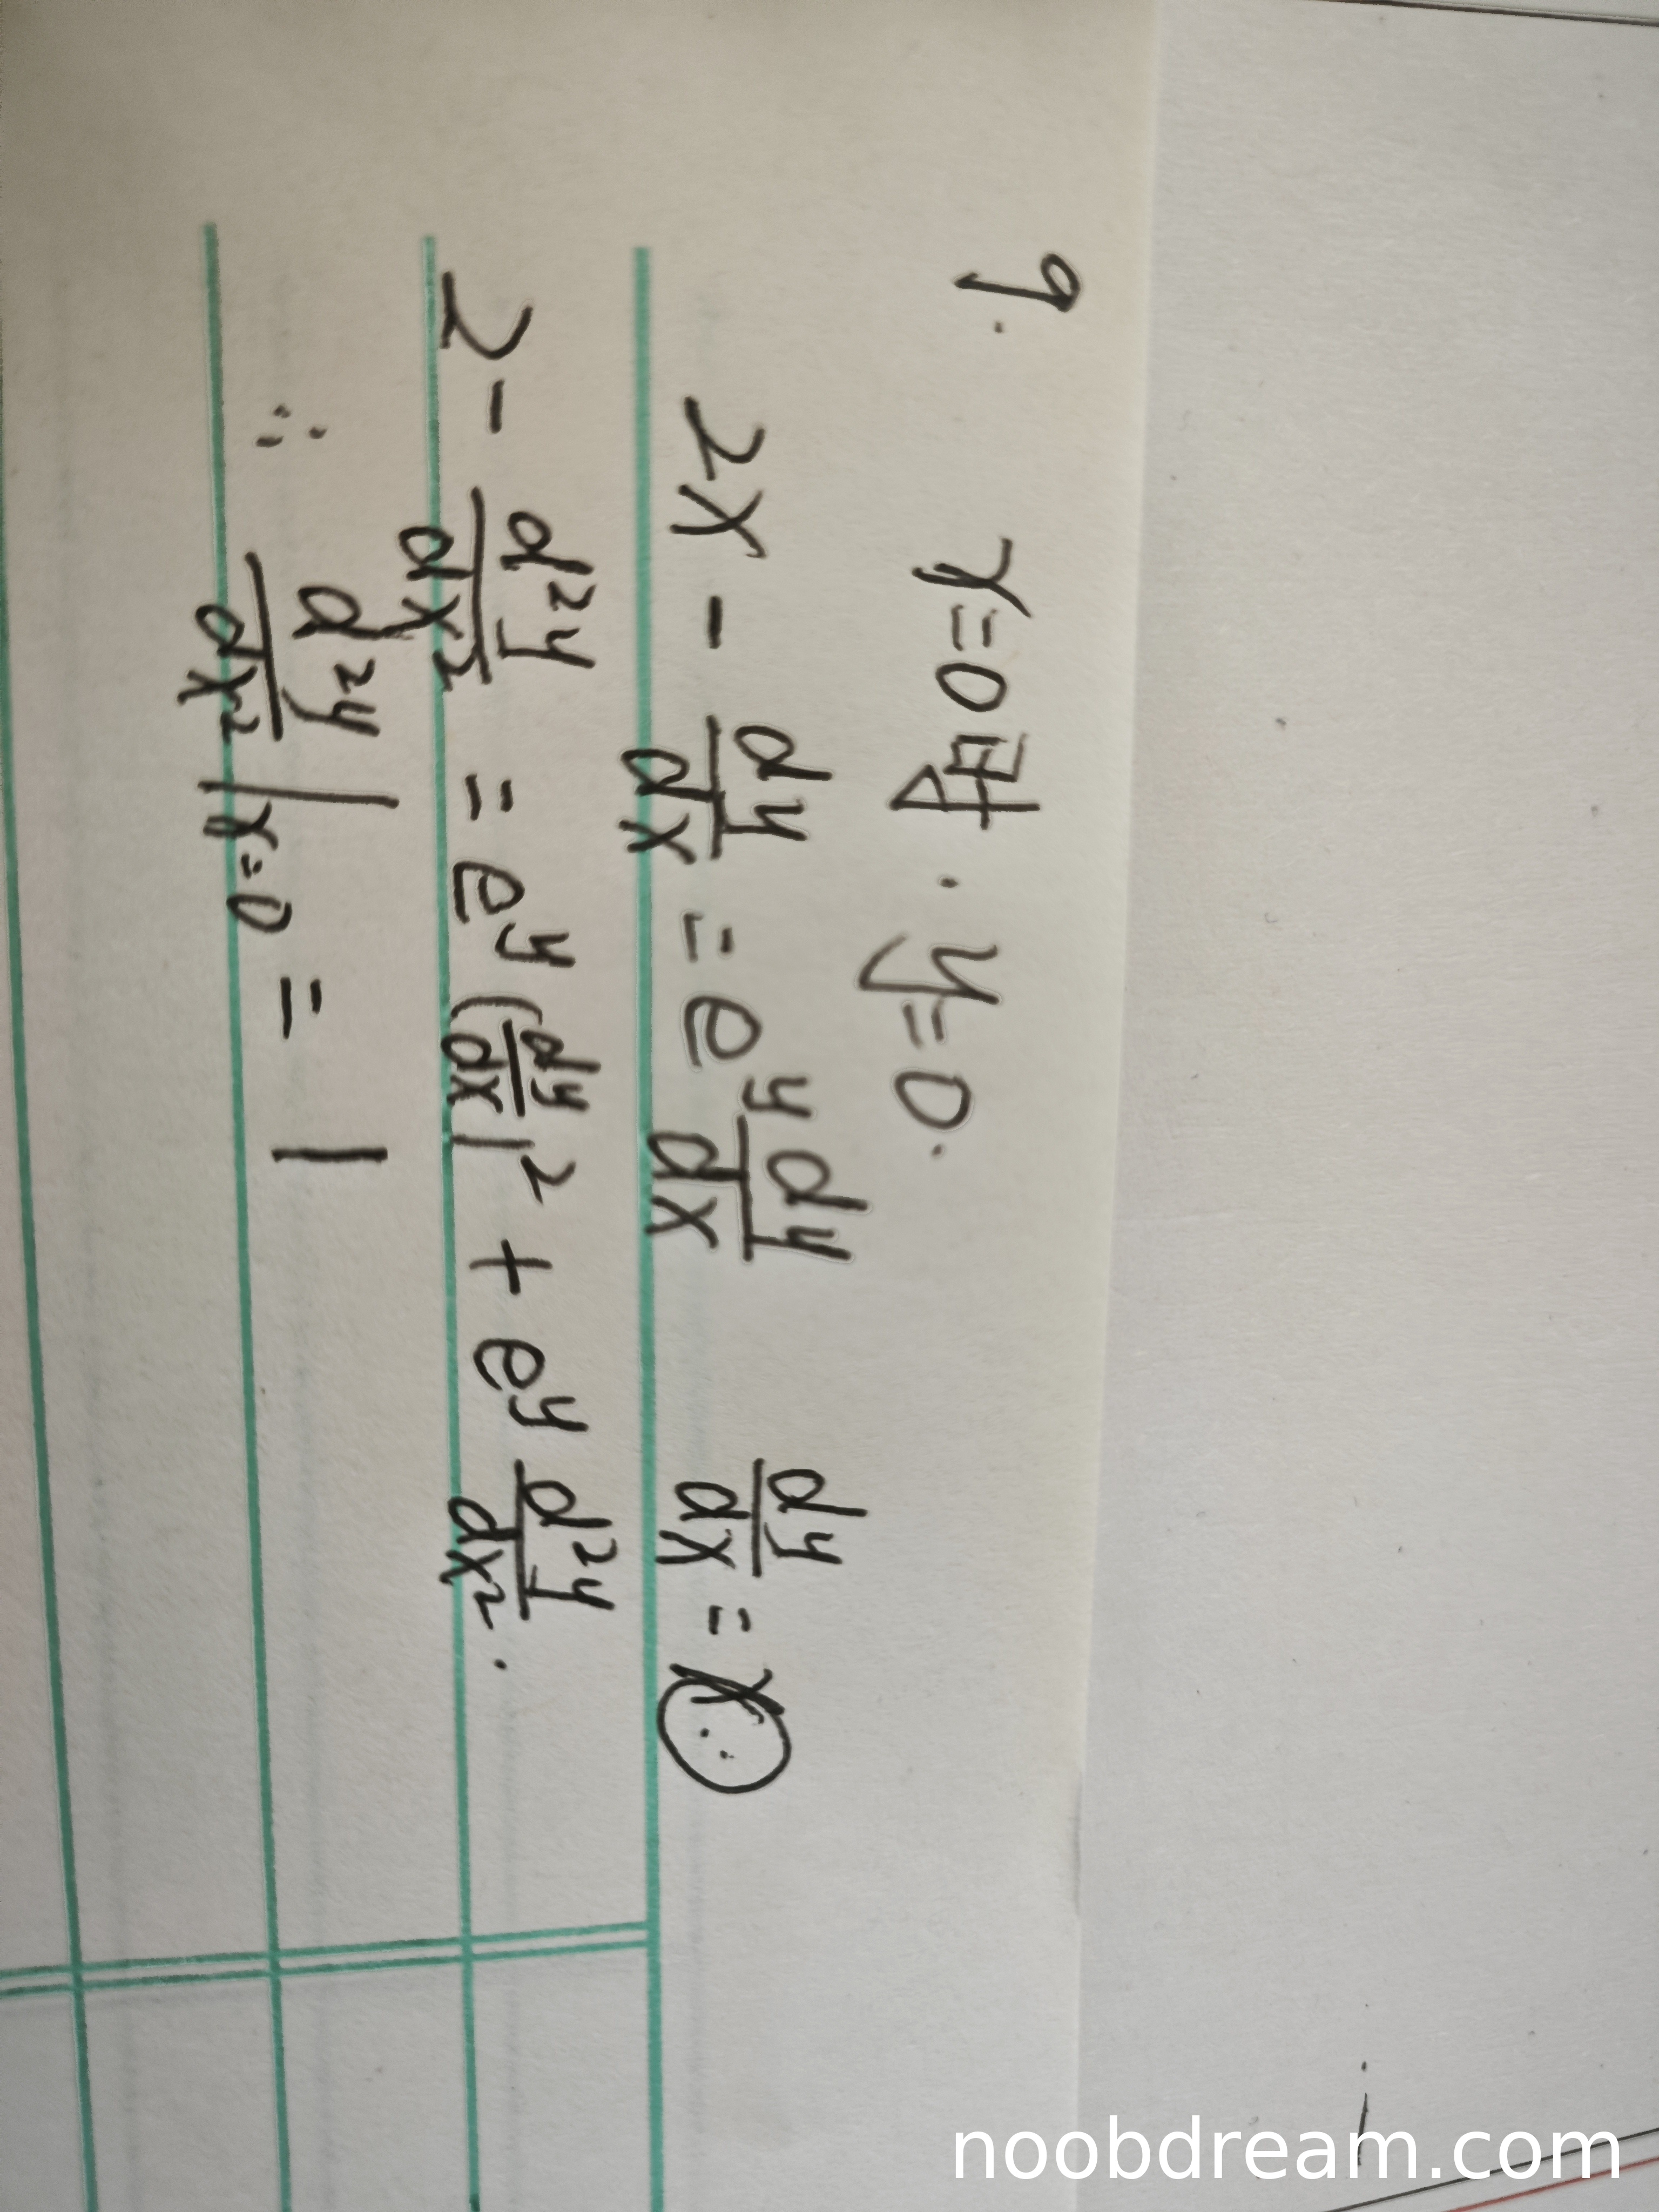 9.
x=0时. y=0.
2x - dy/dx = e^y dy/dx    dy/dx = x
2 - d²y/dx² = e^y (dy/dx)² + e^y d²y/dx².
∴ d²y/dx² |x=0 = 1
noobdream.com